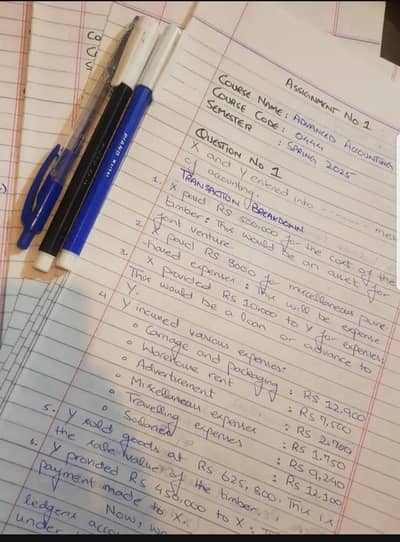 Co
C
S
PIANO
ASSIGNMENT No 1
COURSE NAME: ADVANCED ACCOUNTING
COURSE CODE: 0444
SEMESTER : SPRING 2025
QUESTION No 1
X and Y entered into ........ me
of accounting.
TRANSACTION BREAKDOWN
1. X paid RS 500,000 for the cost of the
timber: This would be an asset for
joint venture.
2. X paid RS 8000 for miscellaneous
expenses: This will be expense.
3. X provided RS 10,000 to Y for expenses;
This would be a loan or advance to
Y.
4. Y incured various expenses:
o Carriage and packaging : RS 12,900
o Warehouse rent : RS 7,500
o Advertisement : RS 2,700
o Miscellaneous expenses : RS 1,750
o Travelling expenses : RS 9,240
o Salaries : RS 12,300
5. Y sold goods at RS 625,800. This is
the sale value of the timber.
6. Y provided RS 450,000 to X: T
payment made to X.
Now, we
ledgers acco
under